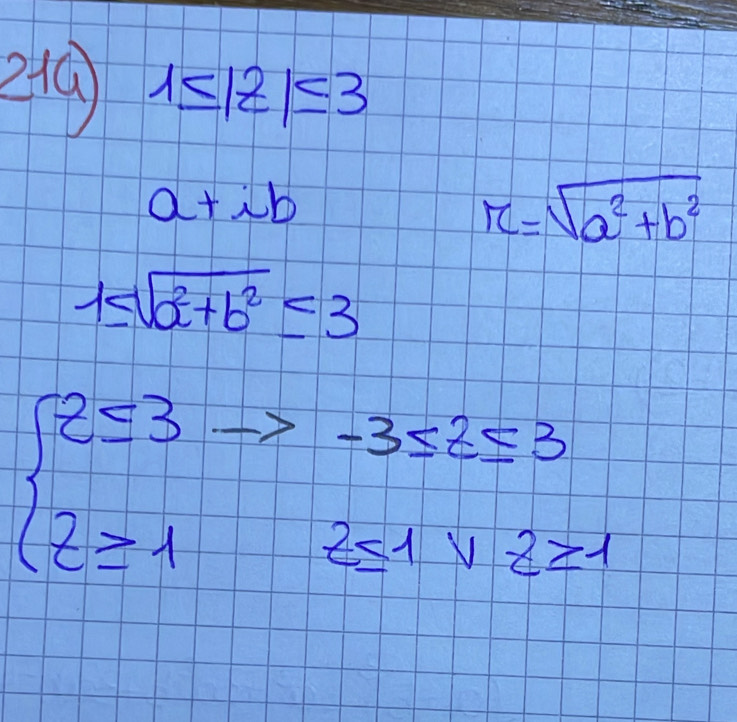 21a) 1≤|z|≤3
a+ib r=√a²+b²
1≤√a²+b² ≤3
{z≤3 -> -3≤z≤3
z≥1 z≤1 ∨ z≥1